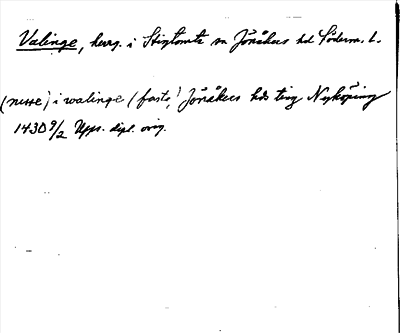 Valinge, herrg. i Stigtomta sn Jönåkers hd Söderm. l.
(nisse) i walinge (faste) Jönåkers hds ting Nyköping
1430 9/2 Upps. dipl. orig.